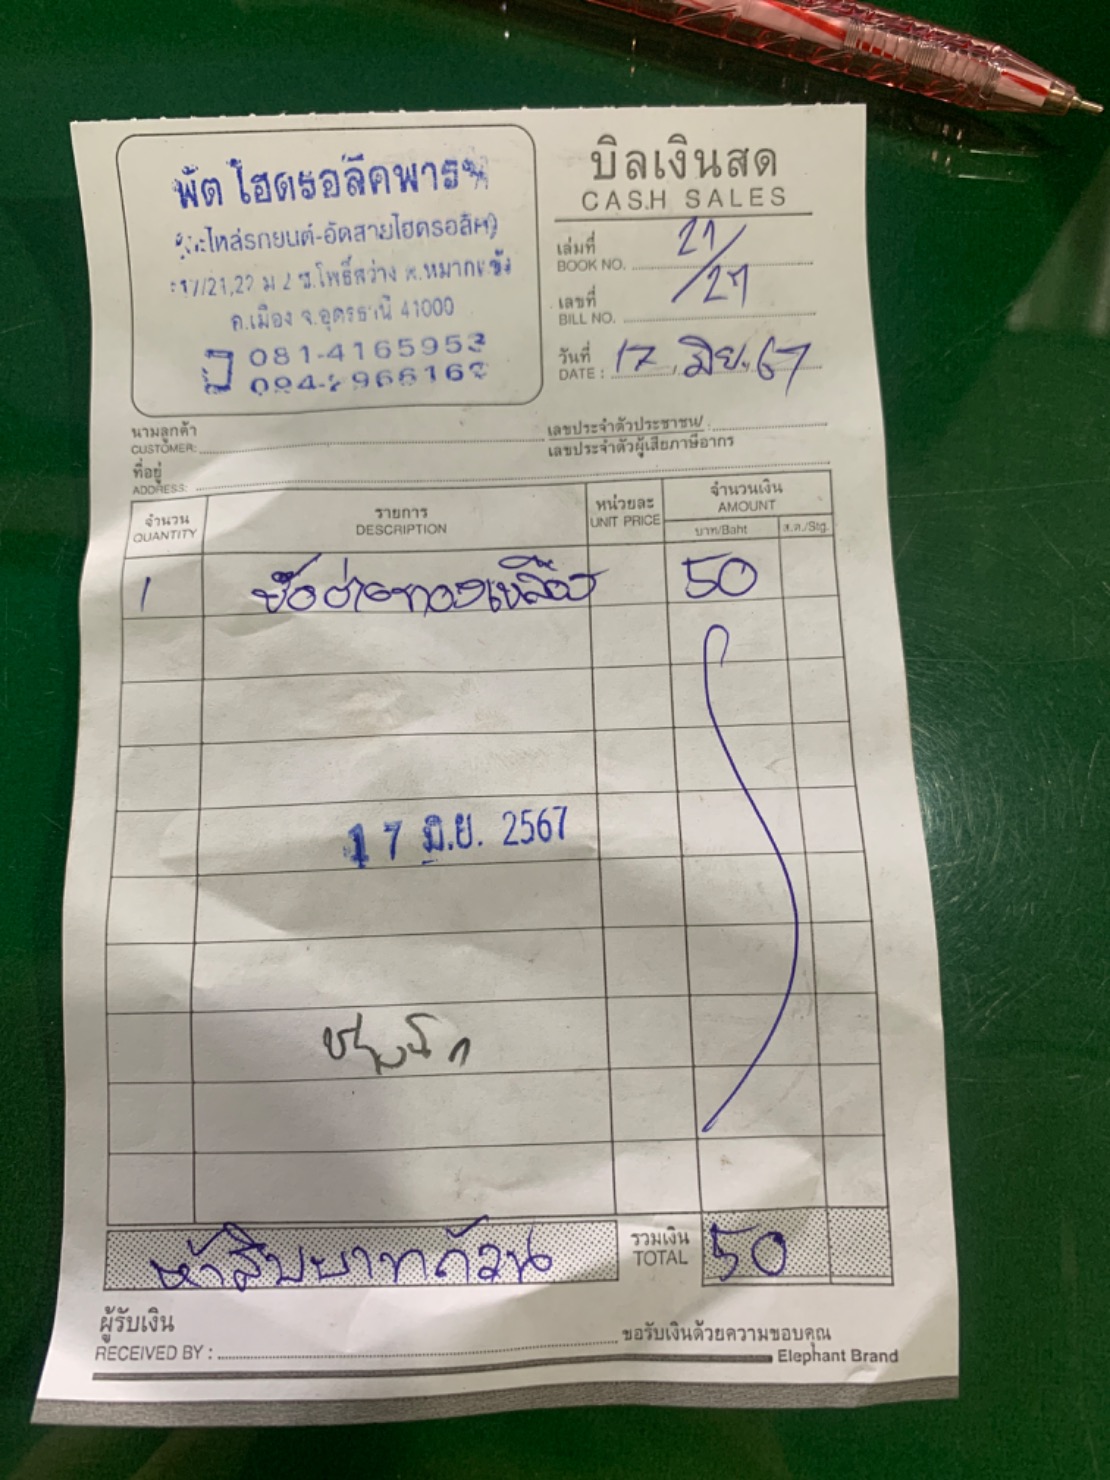 พัต ไฮดรอลิคพาร์ท
อะไหล่รถยนต์-อัดสายไฮดรอลิค
21,22 ม 2 ซ.โพธิ์สว่าง ต.หมากแข้ง
อ.เมือง จ.อุดรธานี 41000
081-4165953
บิลเงินสด
CASH SALES
เล่มที่
BOOK NO. 21/
เลขที่
BILL NO. /27
วันที่
DATE : 17 มิย. 67
นามลูกค้า
CUSTOMER:
เลขประจำตัวประชาชน/
เลขประจำตัวผู้เสียภาษีอากร
ที่อยู่
ADDRESS:
จำนวน
QUANTITY
รายการ
DESCRIPTION
หน่วยละ
UNIT PRICE
จำนวนเงิน
AMOUNT
บาท/Baht
ส.ต./Stg.
1 ทองเหลือง 50
17 มิ.ย. 2567
ห้าสิบบาทถ้วน
รวมเงิน
TOTAL
50
ผู้รับเงิน
RECEIVED BY :
ขอรับเงินด้วยความขอบคุณ
Elephant Brand